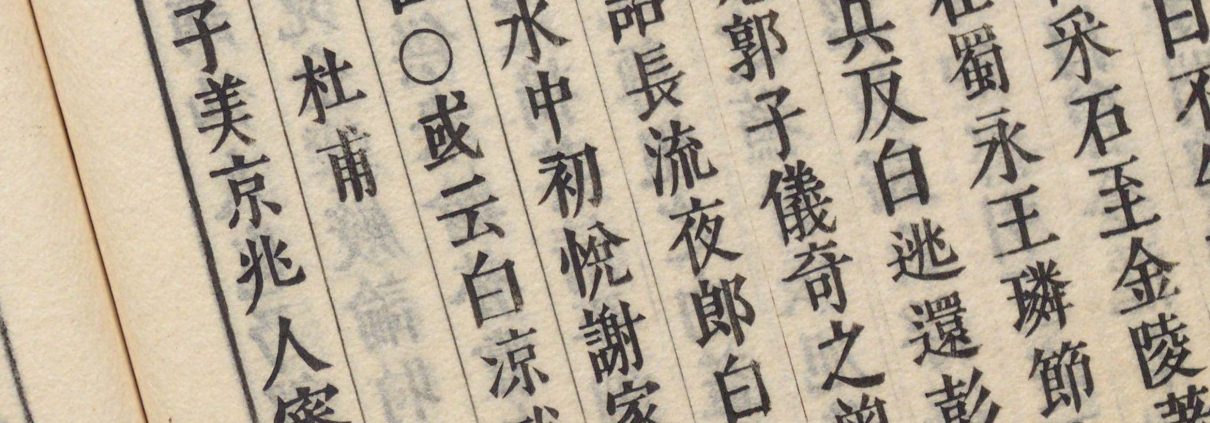 白不
采石至金陵
蜀永王璘節
兵反白逃還彭
郭子儀奇之
長流夜郎白
水中初悅謝家
〇或云白涼
杜甫
子美京兆人